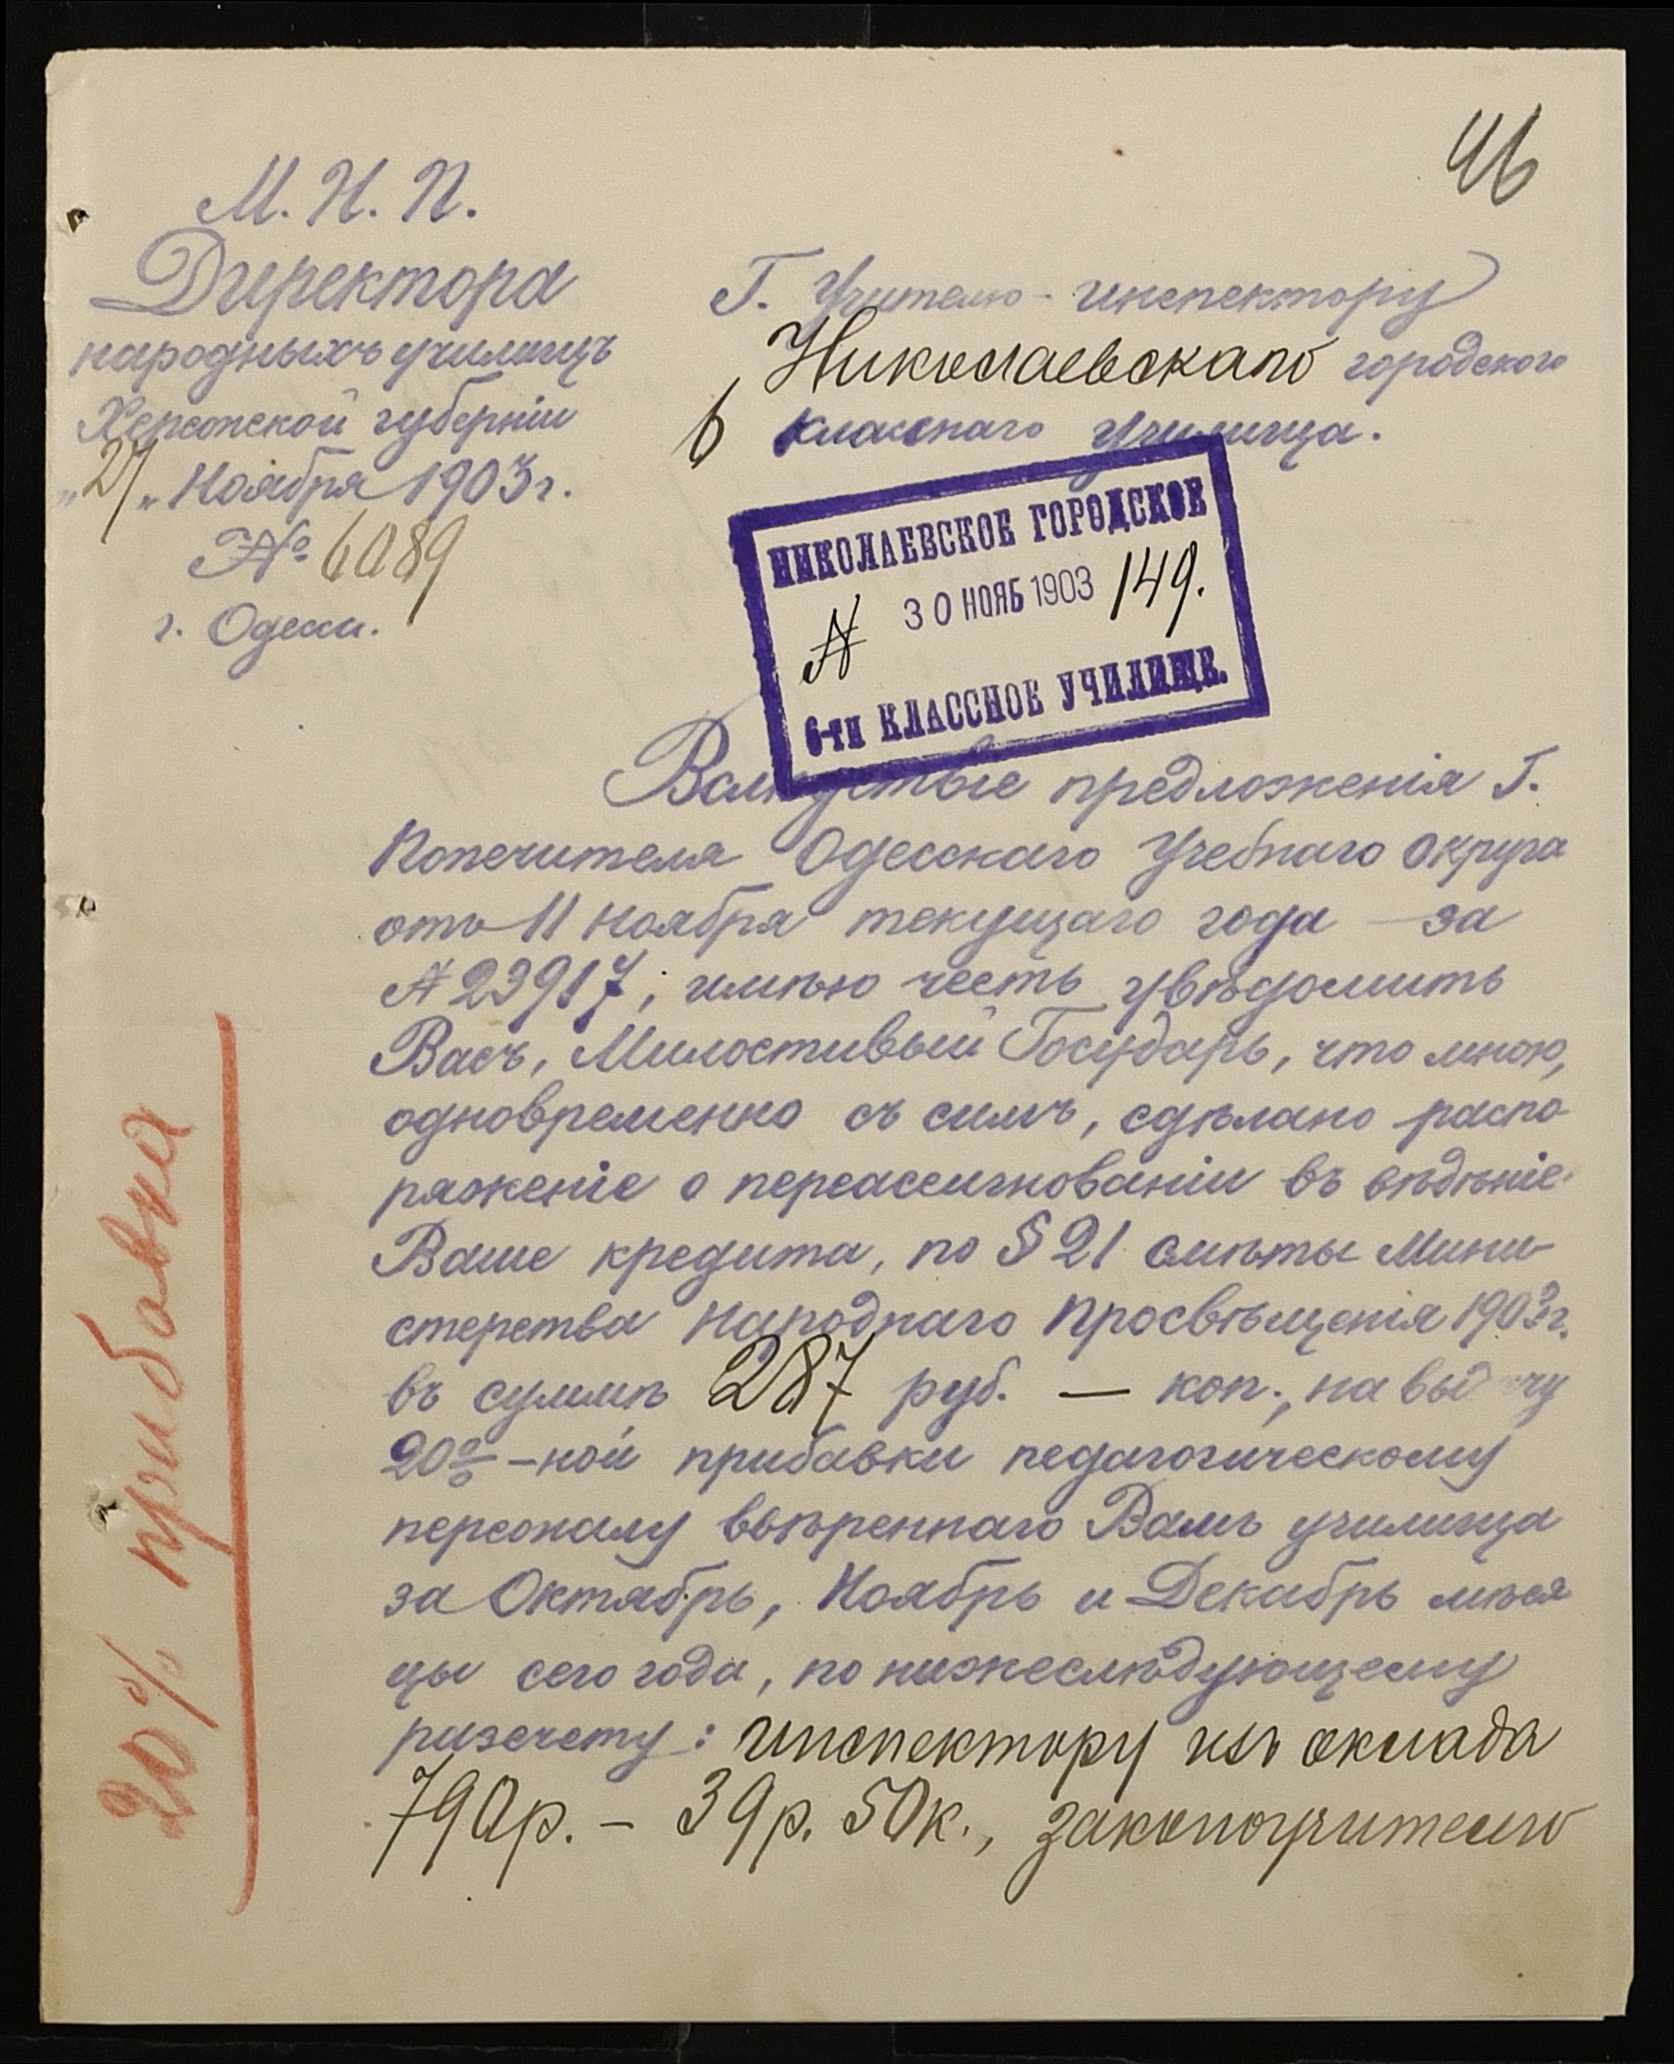 46
М. Н. П.
Директора
народныхъ училищъ
Херсонской губерніи
„27„ Ноября 1903 г.
№ 6089
г. Одесса.
Г. Учителю-инспектору
Николаевскаго городского
6 класснаго училища.
НИКОЛАЕВСКОЕ ГОРОДСКОЕ
30 НОЯБ 1903
№ 149.
6-ти КЛАССНОЕ УЧИЛИЩЕ.
Вслѣдствіе предложенія Г.
Попечителя Одесскаго Учебнаго Округа
отъ 11 ноября текущаго года за
№ 23917, имѣю честь увѣдомить
Васъ, Милостивый Государь, что мною,
одновременно съ симъ, сдѣлано распо
ряженіе о переассигнованіи въ вѣдѣніе
Ваше кредита, по § 21 смѣты Мини-
стерства Народнаго Просвѣщенія 1903 г.
въ суммѣ 287 руб. — коп., на выдачу
20%-ной прибавки педагогическому
персоналу ввѣреннаго Вамъ училища
за Октябрь, Ноябрь и Декабрь мѣся
цы сего года, по нижеслѣдующему
разсчету: инспектору изъ оклада
790 р. – 39 р. 50 к., законоучителю
20% прибавка